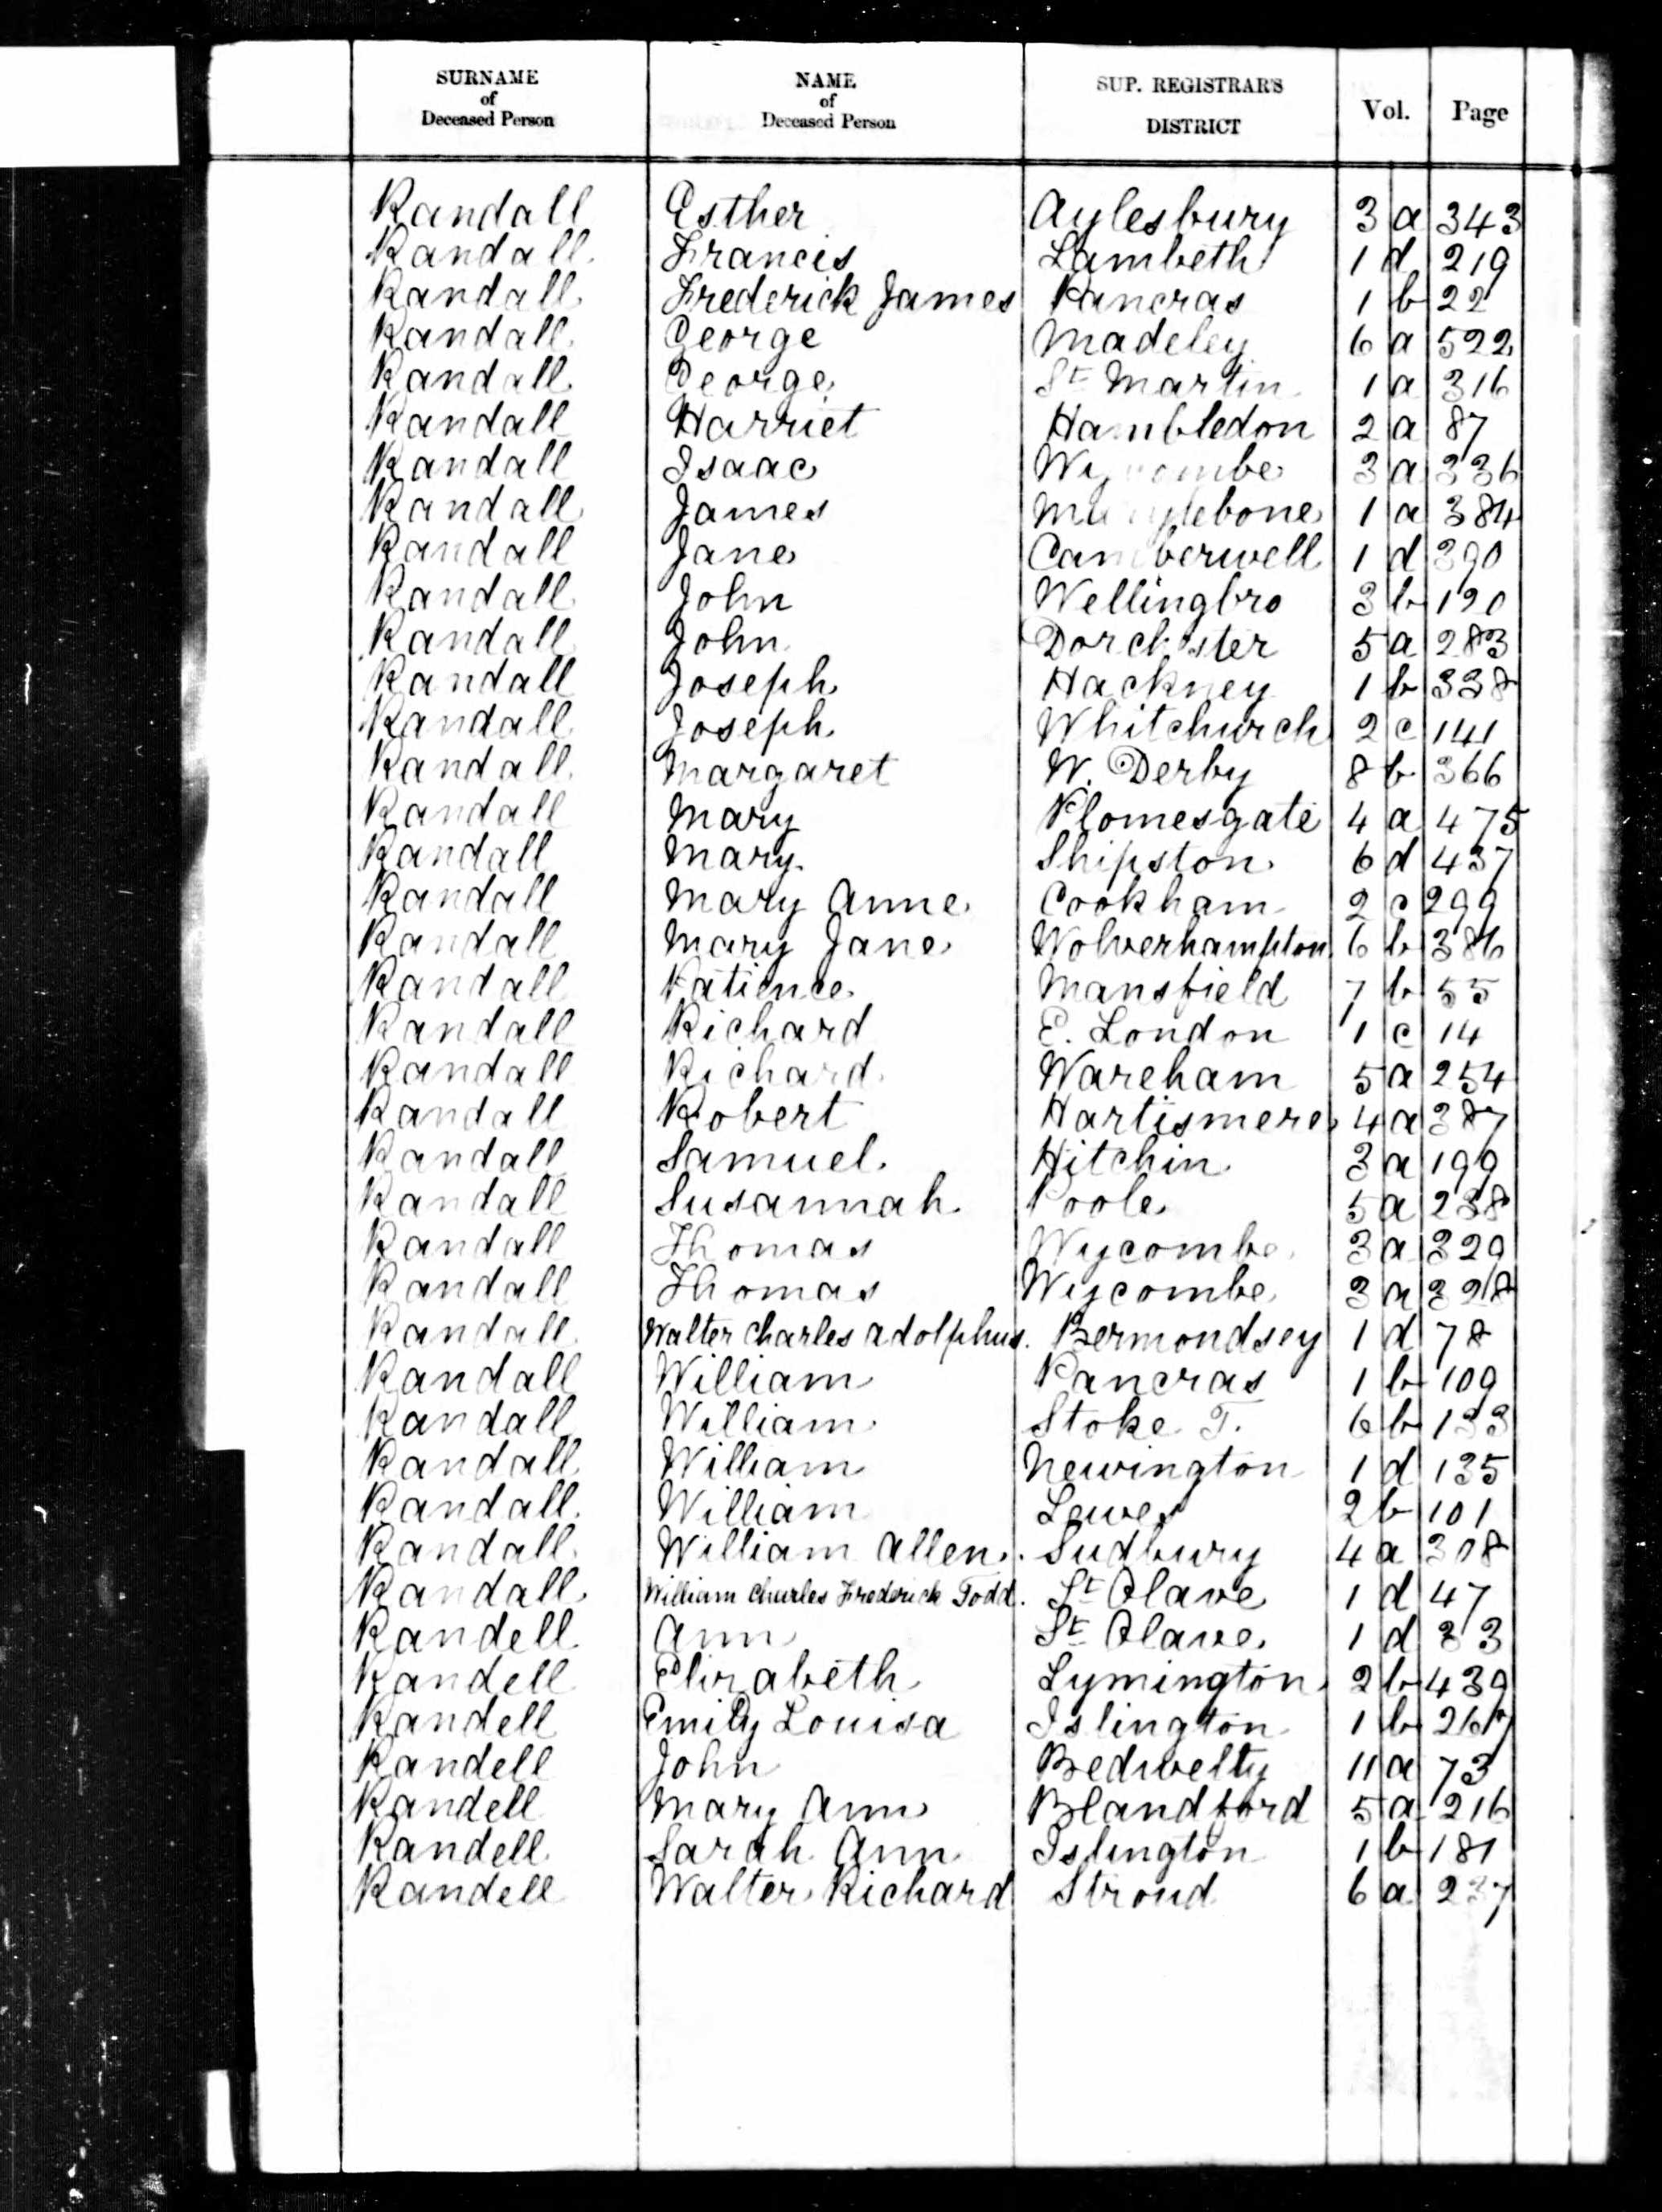 SURNAME of Deceased Person NAME of Deceased Person SUP. REGISTRAR'S DISTRICT Vol. Page
Randall Esther Aylesbury 3 a 343
Randall Francis Lambeth 1 d 219
Randall Frederick James Pancras 1 b 22
Randall George Madeley 6 a 522
Randall George St Martin 1 a 316
Randall Harriet Hambledon 2 a 87
Randall Isaac Wycombe 3 a 336
Randall James Marylebone 1 a 384
Randall Jane Camberwell 1 d 390
Randall John Wellingbro 3 b 120
Randall John Dorchester 5 a 283
Randall Joseph Hackney 1 b 338
Randall Joseph Whitchurch 2 c 141
Randall Margaret W. Derby 8 b 366
Randall Mary Plomesgate 4 a 475
Randall Mary Shipston 6 d 437
Randall Mary Anne Cookham 2 c 299
Randall Mary Jane Wolverhampton 6 b 386
Randall Patience Mansfield 7 b 55
Randall Richard E. London 1 c 14
Randall Richard Wareham 5 a 254
Randall Robert Hartismere 4 a 387
Randall Samuel Hitchin 3 a 199
Randall Susannah Poole 5 a 238
Randall Thomas Wycombe 3 a 329
Randall Thomas Wycombe 3 a 328
Randall Walter Charles Adolphus Bermondsey 1 d 78
Randall William Pancras 1 b 109
Randall William Stoke T. 6 b 133
Randall William Newington 1 d 135
Randall William Lewes 2 b 101
Randall William Allen Sudbury 4 a 308
Randall William Charles Frederick Todd St Olave 1 d 47
Randell Ann St Olave 1 d 33
Randell Elizabeth Lymington 2 b 439
Randell Emily Louisa Islington 1 b 267
Randell John Bedwelty 11 a 73
Randell Mary Ann Blandford 5 a 216
Randell Sarah Ann Islington 1 b 181
Randell Walter Richard Stroud 6 a 237